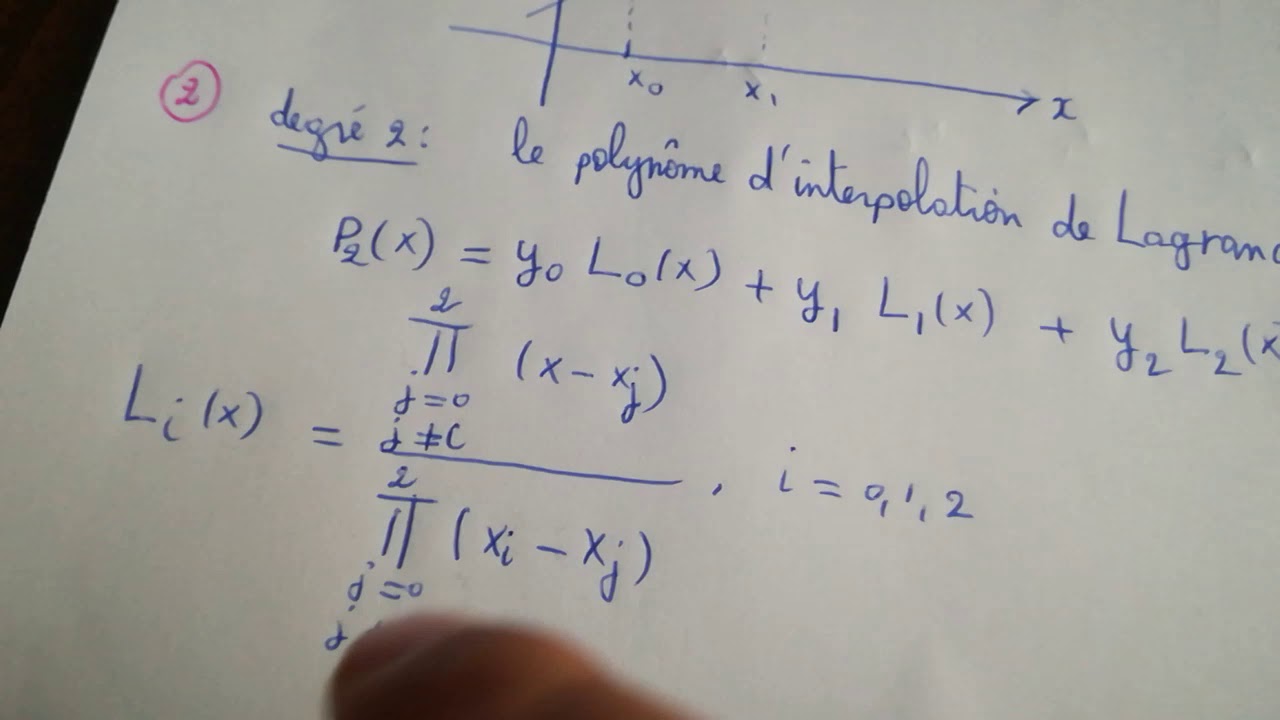 x₀ x₁ x
② degré 2 : le polynôme d'interpolation de Lagran
P₂(x) = y₀ L₀(x) + y₁ L₁(x) + y₂ L₂(x
2
∏ (x - xⱼ)
j=0
Lᵢ(x) = j≠i , i = 0, 1, 2
2
∏ (xᵢ - xⱼ)
j=0
j